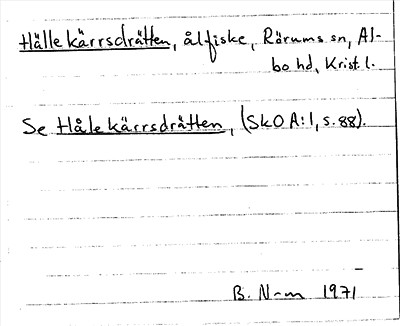 Hällekärrsdrätten, ålfiske, Rörums sn, Al-
bo hd, Krist. l.
Se Hålekärrsdrätten, (SkO A:1, s. 88).
B. N-m 1971